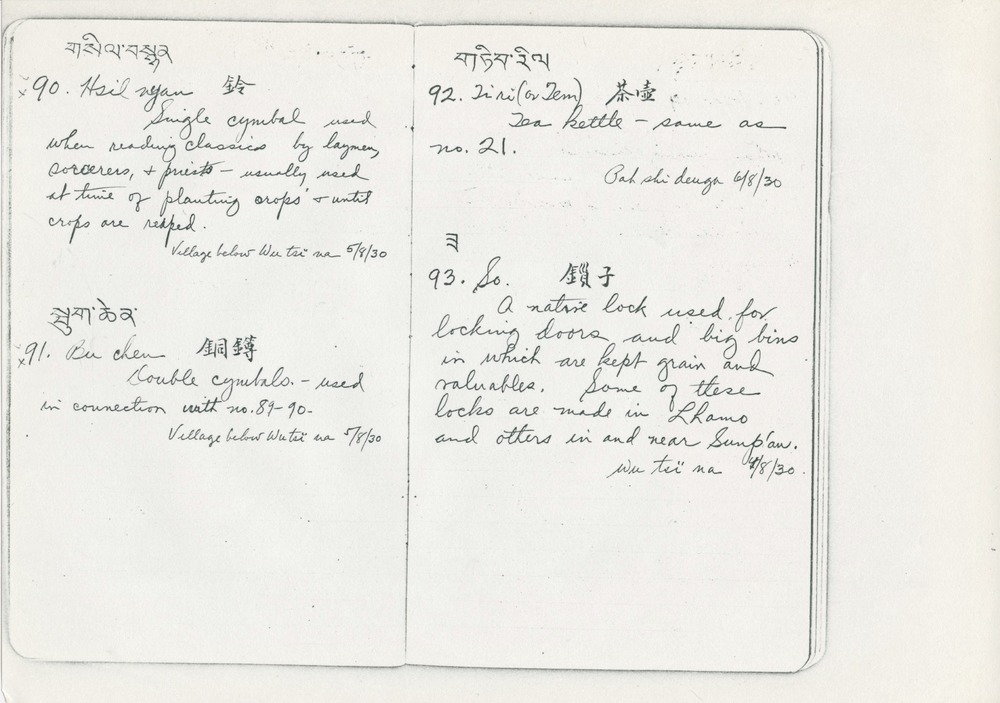 གསིལ་བསྙན
x90. Hsil nyan 鈴
Single cymbal used
when reading classics by laymen,
sorcerers, & priests - usually used
at time of planting crops & until
crops are reaped.
Village below Wu tsï na 5/8/30
སྦུག་ཆེན་
x91. Bu chen 銅鑮
Double cymbals. - used
in connection with no. 89-90-
Village below Wu tsï na 5/8/30
གཏིབ་རིལ
92. Ti ri (or Tem) 茶壺
Tea kettle - same as
no. 21.
6/8/30
ཟ
93. So. 鎖子
A native lock used for
locking doors and big bins
in which are kept grain and
valuables. Some of these
locks are made in Lhamo
and others in and near Sunp'an.
Wu tsï na 4/8/30.